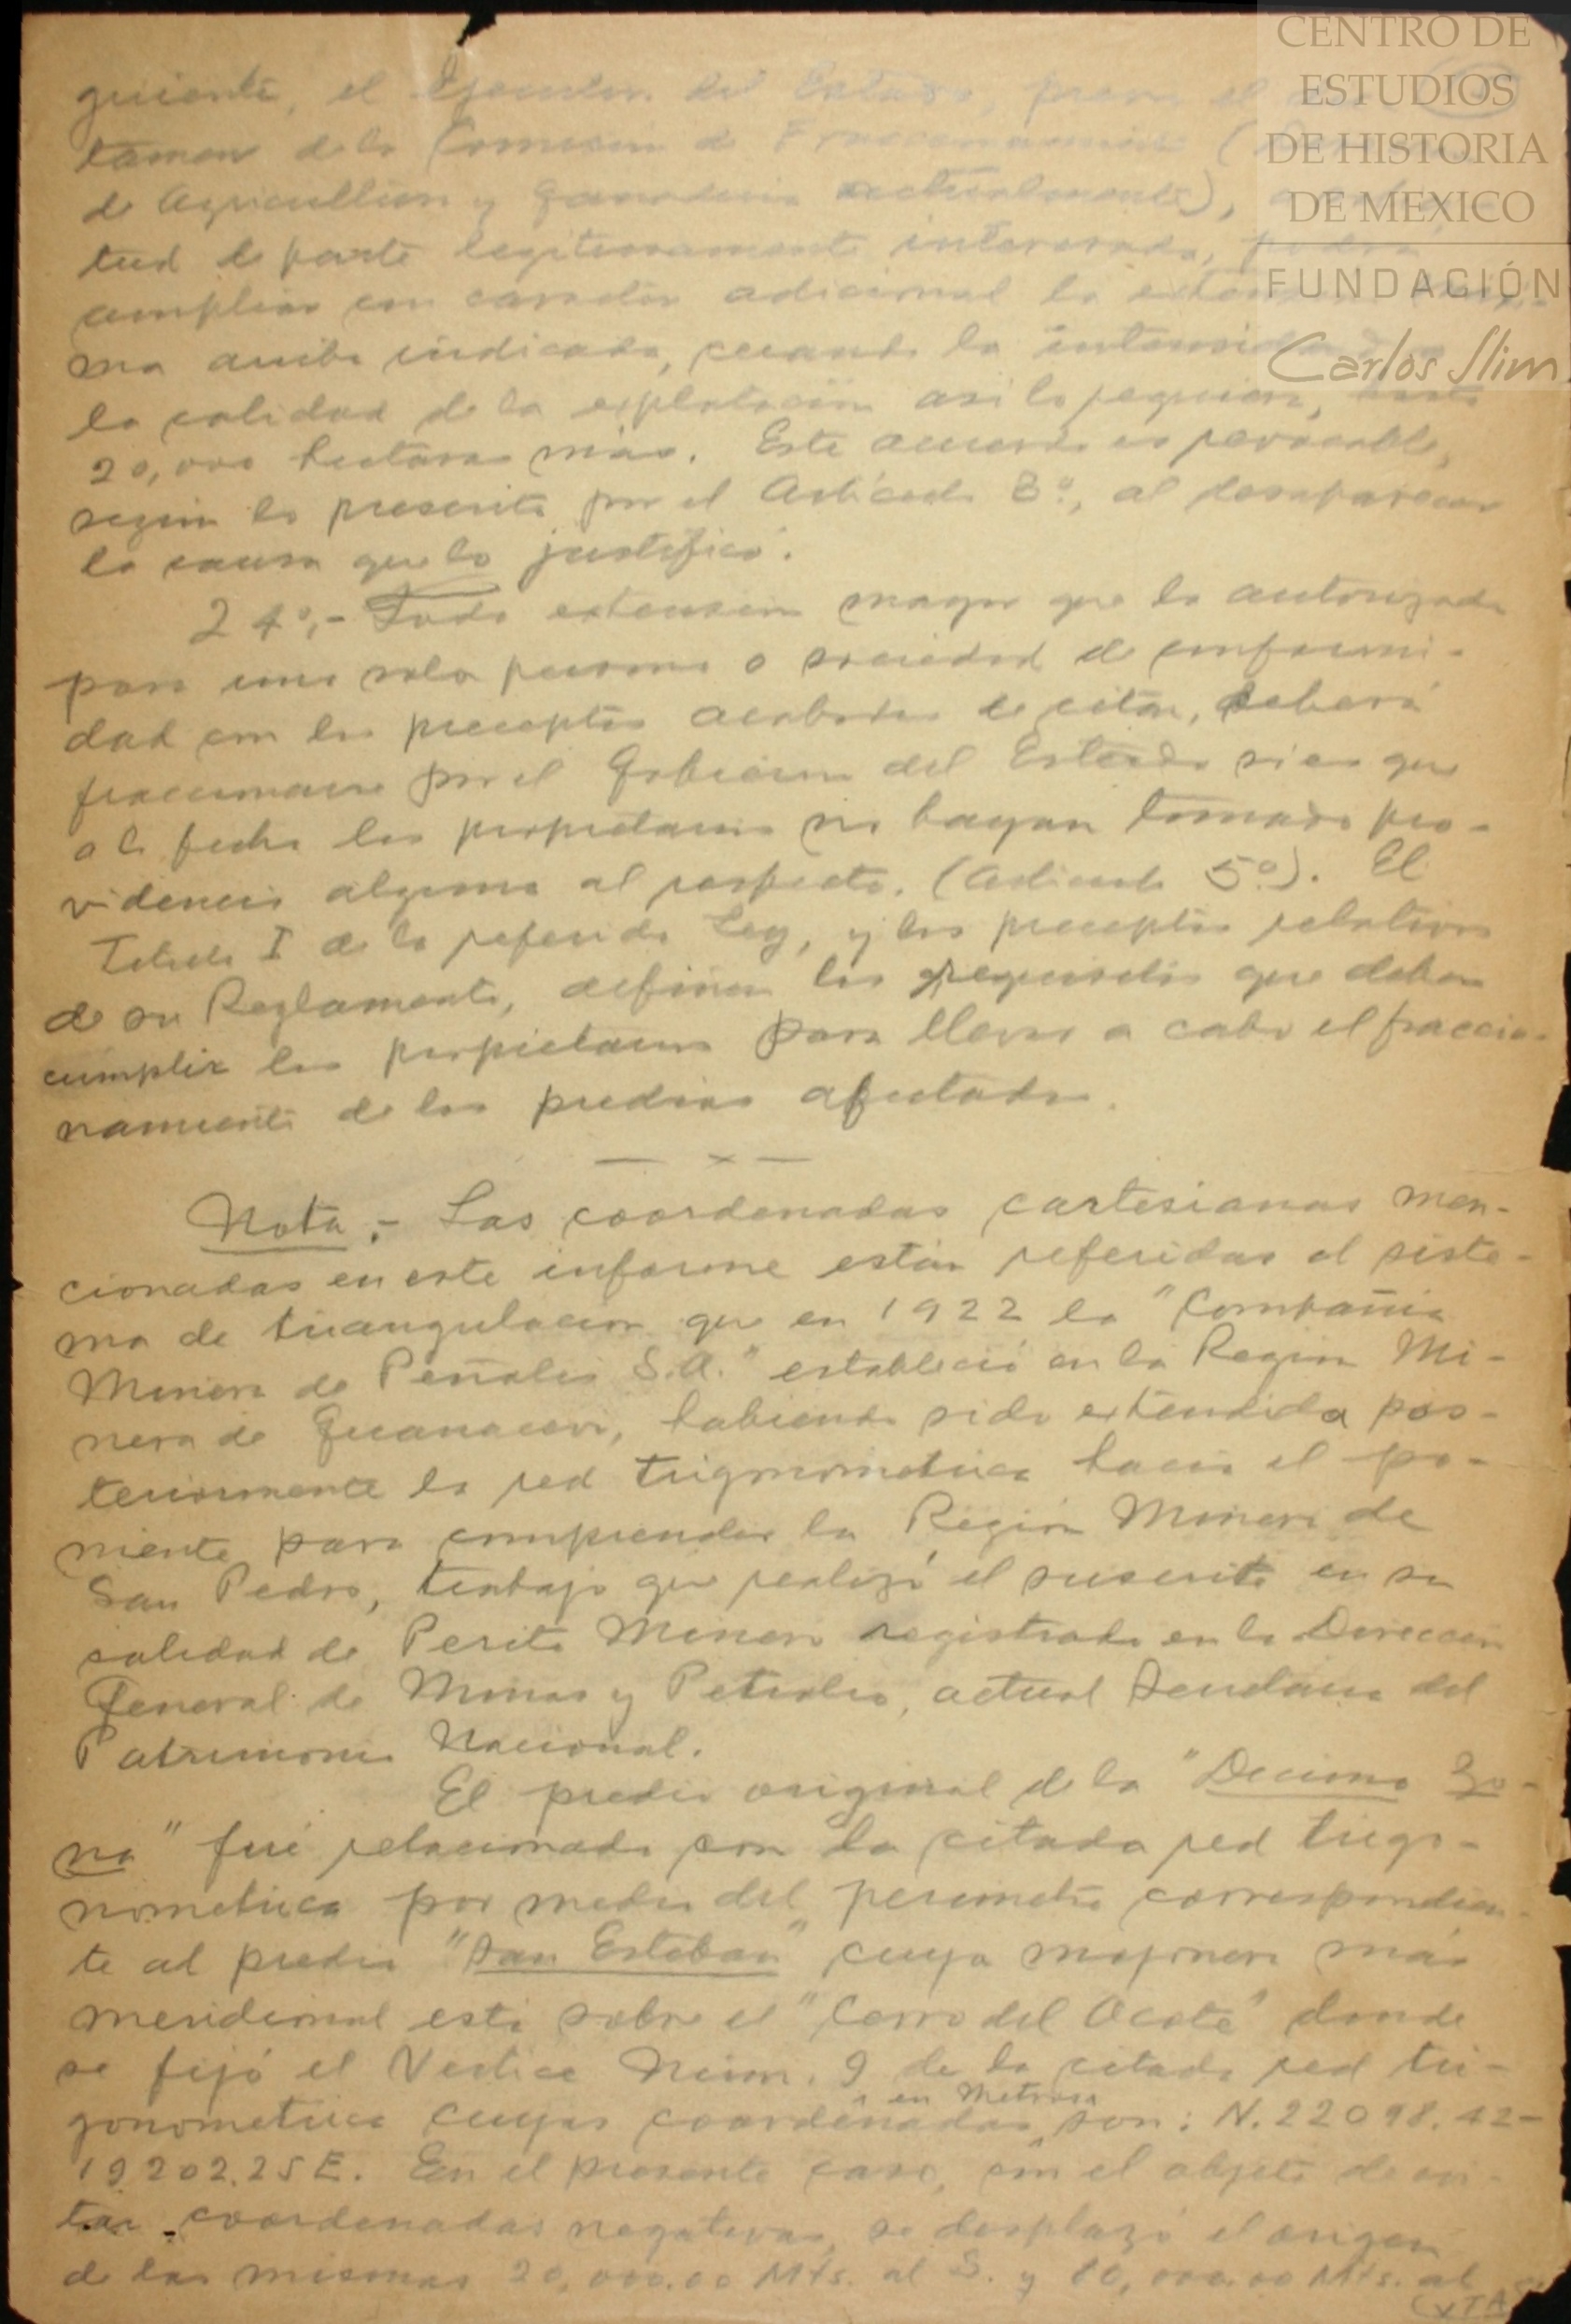 CENTRO DE
ESTUDIOS
DE HISTORIA
DE MEXICO
FUNDACIÓN
Carlos Slim
guiente, el Ejecutivo del Estado, previo el
tamen de la Comisión de Fraccionamiento (
de Agricultura y Ganaderia actualmente),
tud de parte legitimamente interesada, podrá
ampliar con caracter adicional la extensión
ma arriba indicada, cuando la intensidad
la calidad de la explotación asi lo requiera, hasta
20,000 hectaras más. Este acuerdo es revocable,
según lo prescrito por el Articulo 3º, al desaparecer
la causa que lo justificó.
24º,- Toda extensión mayor que la autorizada
para una sola persona o sociedad de conformi-
dad con los preceptos acabados de citar, deberá
fraccionarse por el Gobierno del Estado si es que
a la fecha los propietarios no hayan tomado pro-
videncia alguna al respecto. (Articulo 5º). El
Titulo I de la referida Ley, y los preceptos relativos
de su Reglamento, definen los requisitos que deben
cumplir los propietarios para llevar a cabo el fraccio-
namiento de los predios afectados.
— x —
Nota,- Las coordenadas cartesianas men-
cionadas en este informe están referidas al siste-
ma de triangulación que en 1922 la "Compañia
Minera de Peñoles S.A." estableció en la Región Mi-
nera de Guanaceví, habiendo sido extendida pos-
teriormente la red trigonométrica hacia el po-
niente para comprender la Región Minera de
San Pedro, trabajo que realizó el suscrito en su
calidad de Perito Minero registrado en la Dirección
General de Minas y Petroleo, actual Secretaria del
Patrimonio Nacional.
El predio original de la "Decima Zo-
na" fué relacionado con la citada red trigo-
nometrica por medio del perimetro correspondien-
te al predio "San Esteban" cuya mojonera más
meridional está sobre el "Cerro del Ocote" donde
se fijó el Vertice Núm. 9 de la citada red tri-
gonometrica cuyas coordenadas en Metros son: N. 22098.42-
19202.25 E. En el presente caso, con el objeto de evi-
tar coordenadas negativas, se desplazó el origen
de las mismas 20,000.00 Mts. al S. y 10,000.00 Mts. al